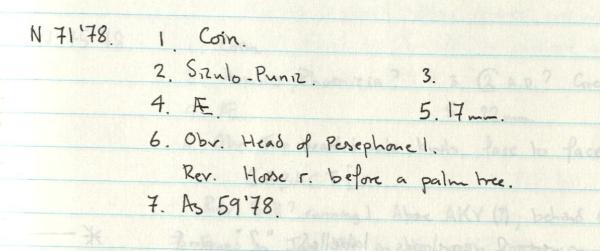 N 71'78. 1. Coin.
2. Sizulo-Puniz. 3.
4. Æ. 5. 17mm.
6. Obv. Head of Pesephone l.
Rev. Horse r. before a palm tree.
7. As 59'78.